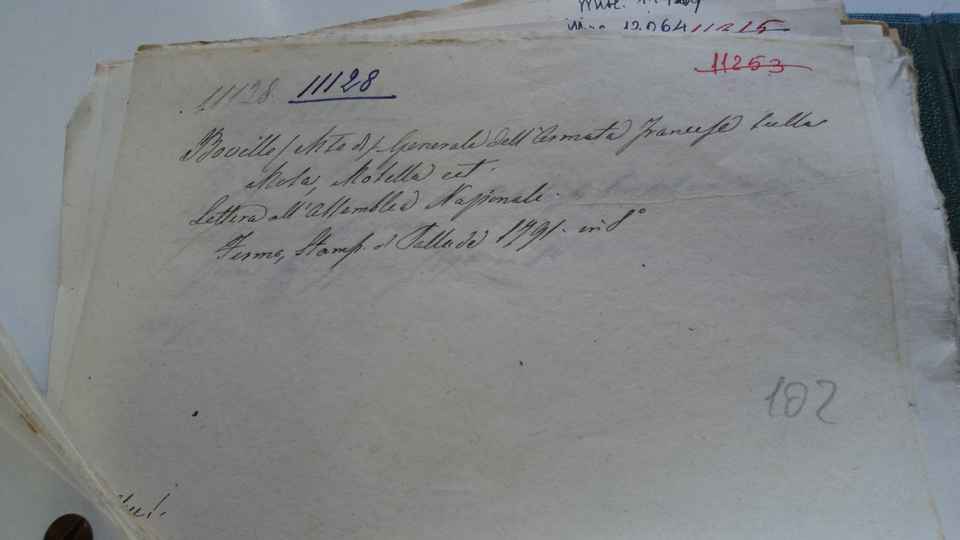 12.064 11215
11253
11128 11128
Boville / Generale dell'Armata Francese sulla
Mosa, Mosella cet.
Lettera all'Assemblea Nazionale.
Fermo, Stamp. di Pallade 1791. in 8°
102